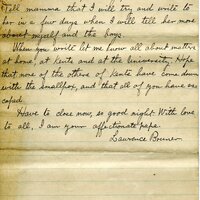 Tell mamma that I will try and write to
her in a few days when I will tell her more
about myself and the boys.
When you write let me know all about matters
at home, at Kents and at the University. Hope
that none of the others at Kents have come down
with the smallpox, and that all of you have es-
caped.
Have to close now, so good night. With love
to all, I am your affectionate papa.
Lawrence Bruner